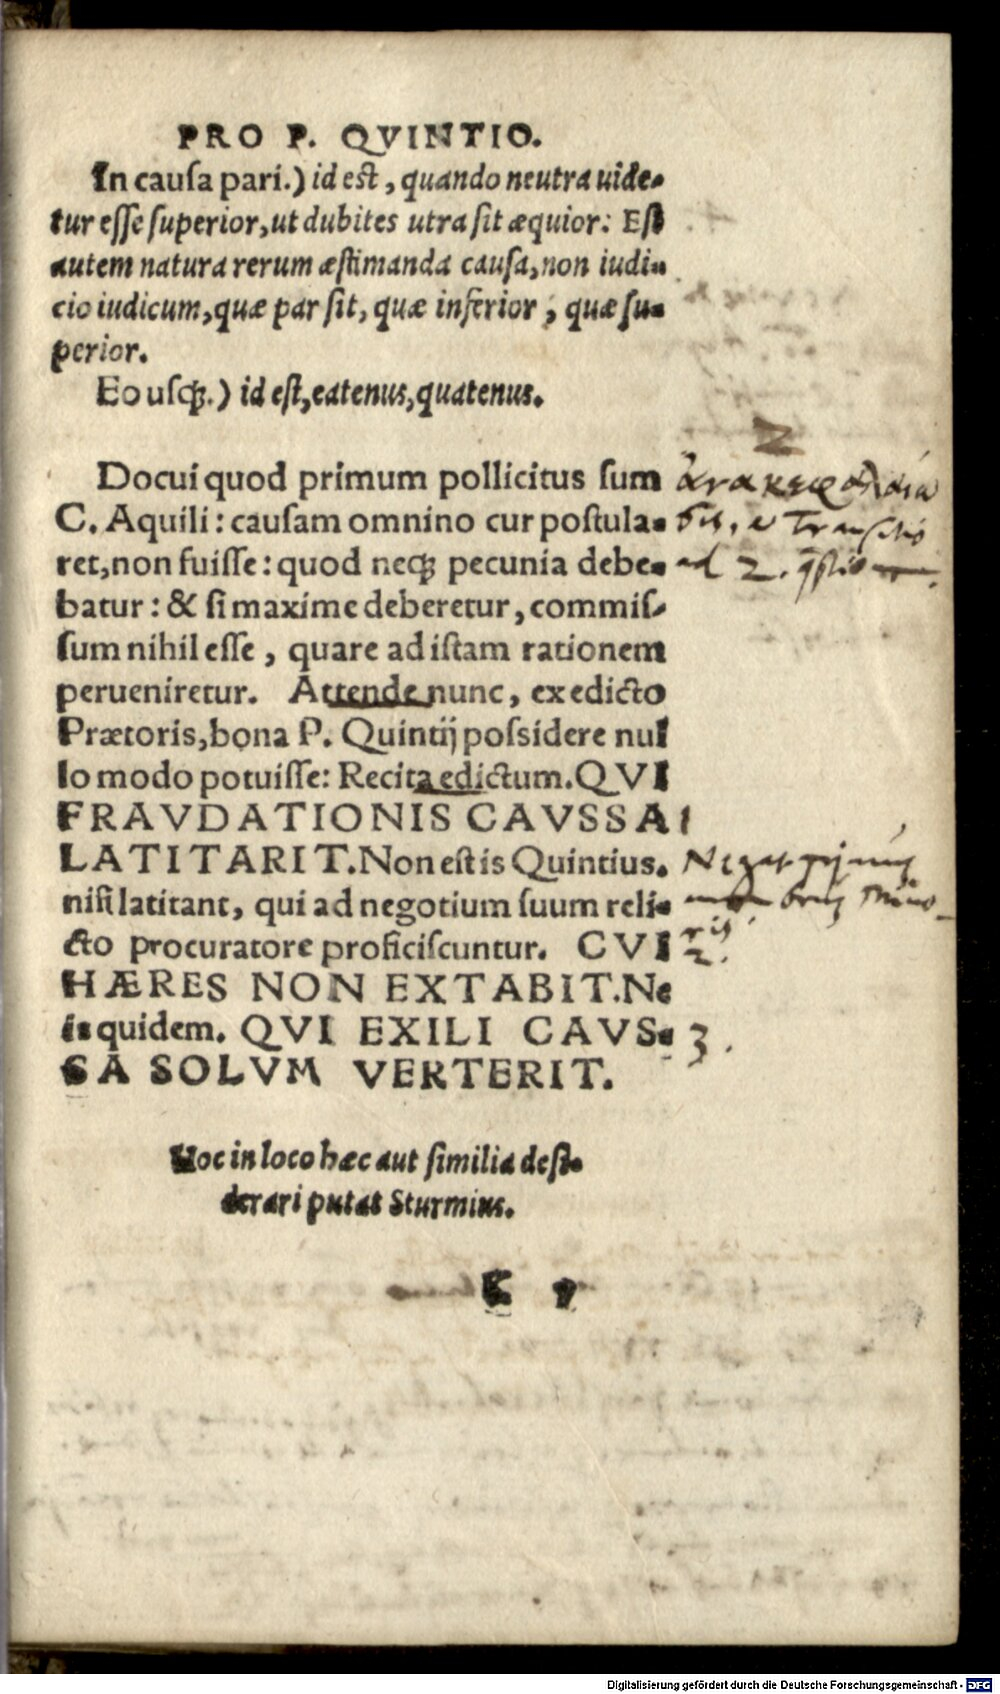 PRO P. QVINTIO.
In causa pari.) id est, quando neutra uide-
tur esse superior, ut dubites utra sit æquior: Est
autem natura rerum æstimanda causa, non iudi-
cio iudicum, quæ par sit, quæ inferior, quæ su-
perior.
Eo usq;.) id est, eatenus, quatenus.
2
Docui quod primum pollicitus sum
C. Aquili: causam omnino cur postula-
ret, non fuisse: quod neq; pecunia debe-
ad 2.
batur: & si maxime deberetur, commis-
sum nihil esse, quare ad istam rationem
perueniretur. Attende nunc, ex edicto
Prætoris, bona P. Quintij possidere nul
lo modo potuisse: Recita edictum. QVI
FRAVDATIONIS CAVSSA
1
LATITARIT. Non est is Quintius.
Negat
nisi latitant, qui ad negotium suum reli-
cto procuratore proficiscuntur. CVI
2.
HÆRES NON EXTABIT. Ne
is quidem. QVI EXILI CAVS-
3.
SA SOLVM VERTERIT.
Hoc in loco hæc aut similia desi-
derari putat Sturmius.
Digitalisierung gefördert durch die Deutsche Forschungsgemeinschaft - DFG